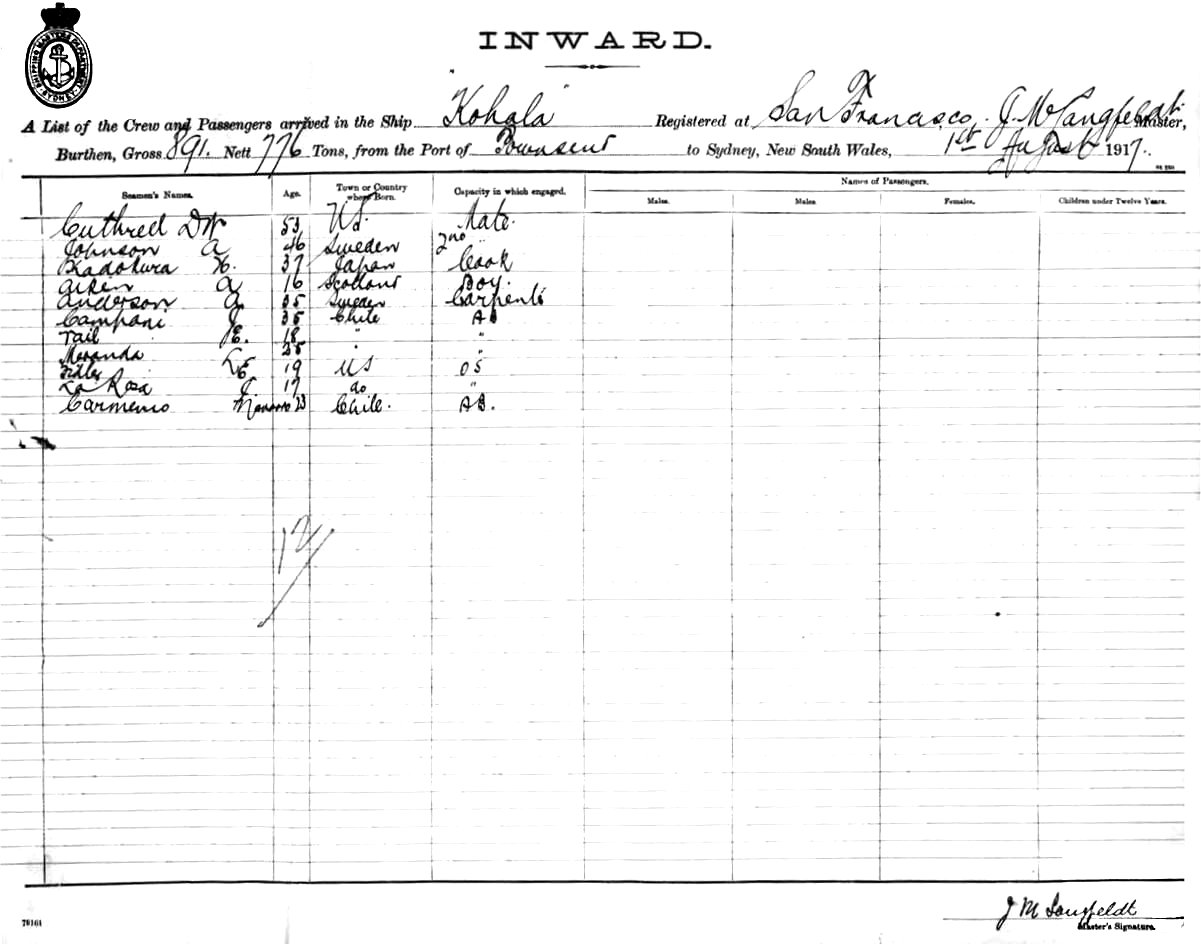 SHIPPING MASTER'S DEPARTMENT SYDNEY
INWARD.
A List of the Crew and Passengers arrived in the Ship "Kohala" Registered at San Francisco, J. M. Langfeldt Master,
Burthen, Gross 891. Nett 776 Tons, from the Port of Townsend to Sydney, New South Wales, 1st August 1917.
Seamen's Names. Age. Town or Country where Born. Capacity in which engaged. Names of Passengers.
Males. Males Females. Children under Twelve Years.
Cuthred D W 53 US. Mate.
Johnson A 46 Sweden 2nd "
Kadokura K. 37 Japan Cook
Aiken A 16 Scotland Boy.
Anderson A 35 Sweden Carpentr
Campani J 35 Chile AB
Tail E. 18 " "
Meranda 25 " "
E 19 US OS
La Rosa J 17 do "
Carmenio 23 Chile. AB.
12
70161
J M Langfeldt
Master's Signature.